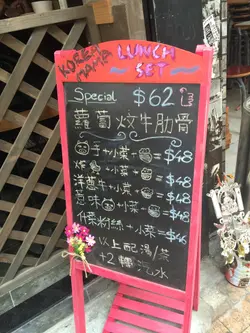 KOREA MAMA
LUNCH SET
Special $62
蘿蔔炆牛肋骨
手+小菜+ =$48
+小菜+ =$48
洋蔥牛+小菜+ =$48
味 +小菜+ =$48
什菜粉絲+小菜 =$46
以上配湯/茶
+2轉汽水